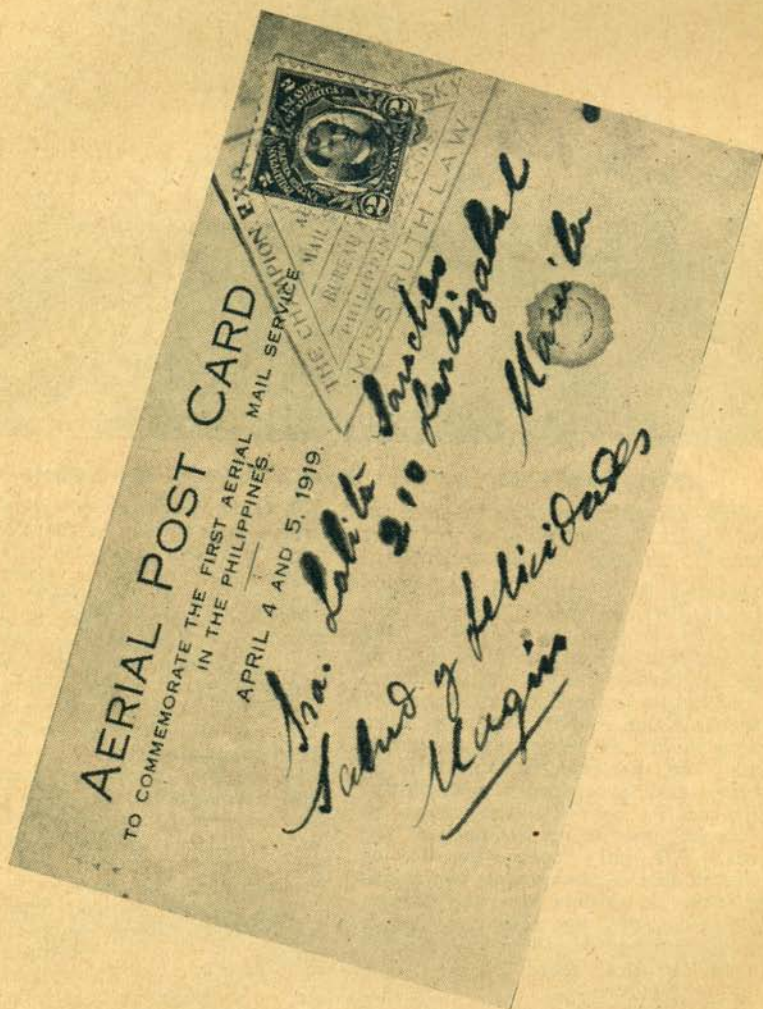 AERIAL POST CARD
TO COMMEMORATE THE FIRST AERIAL MAIL SERVICE
IN THE PHILIPPINES.
APRIL 4 AND 5, 1919.
THE CHAMPION EXP
SKY
MAIL
BUREAU
PHILIPPIN
MISS RUTH LAW
PHILIPPINE ISLANDS
UNITED STATES OF AMERICA
2 2
Sra. Lolita Sanches
210 Lardizabal
Manila
Salud y felicidades
Magin